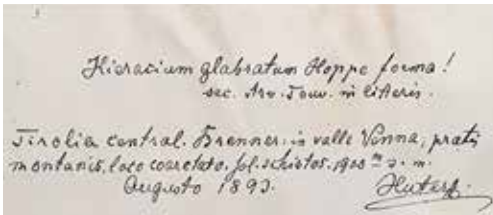 Hieracium glabratum Hoppe forma!
sec. Arv. Touv. in litteris.
Tirolia central. Brenner: in valle Venna, pratis
montanis, loco coarctato, sol. schistos. 1900 m s. m.
Augusto 1893. Huter